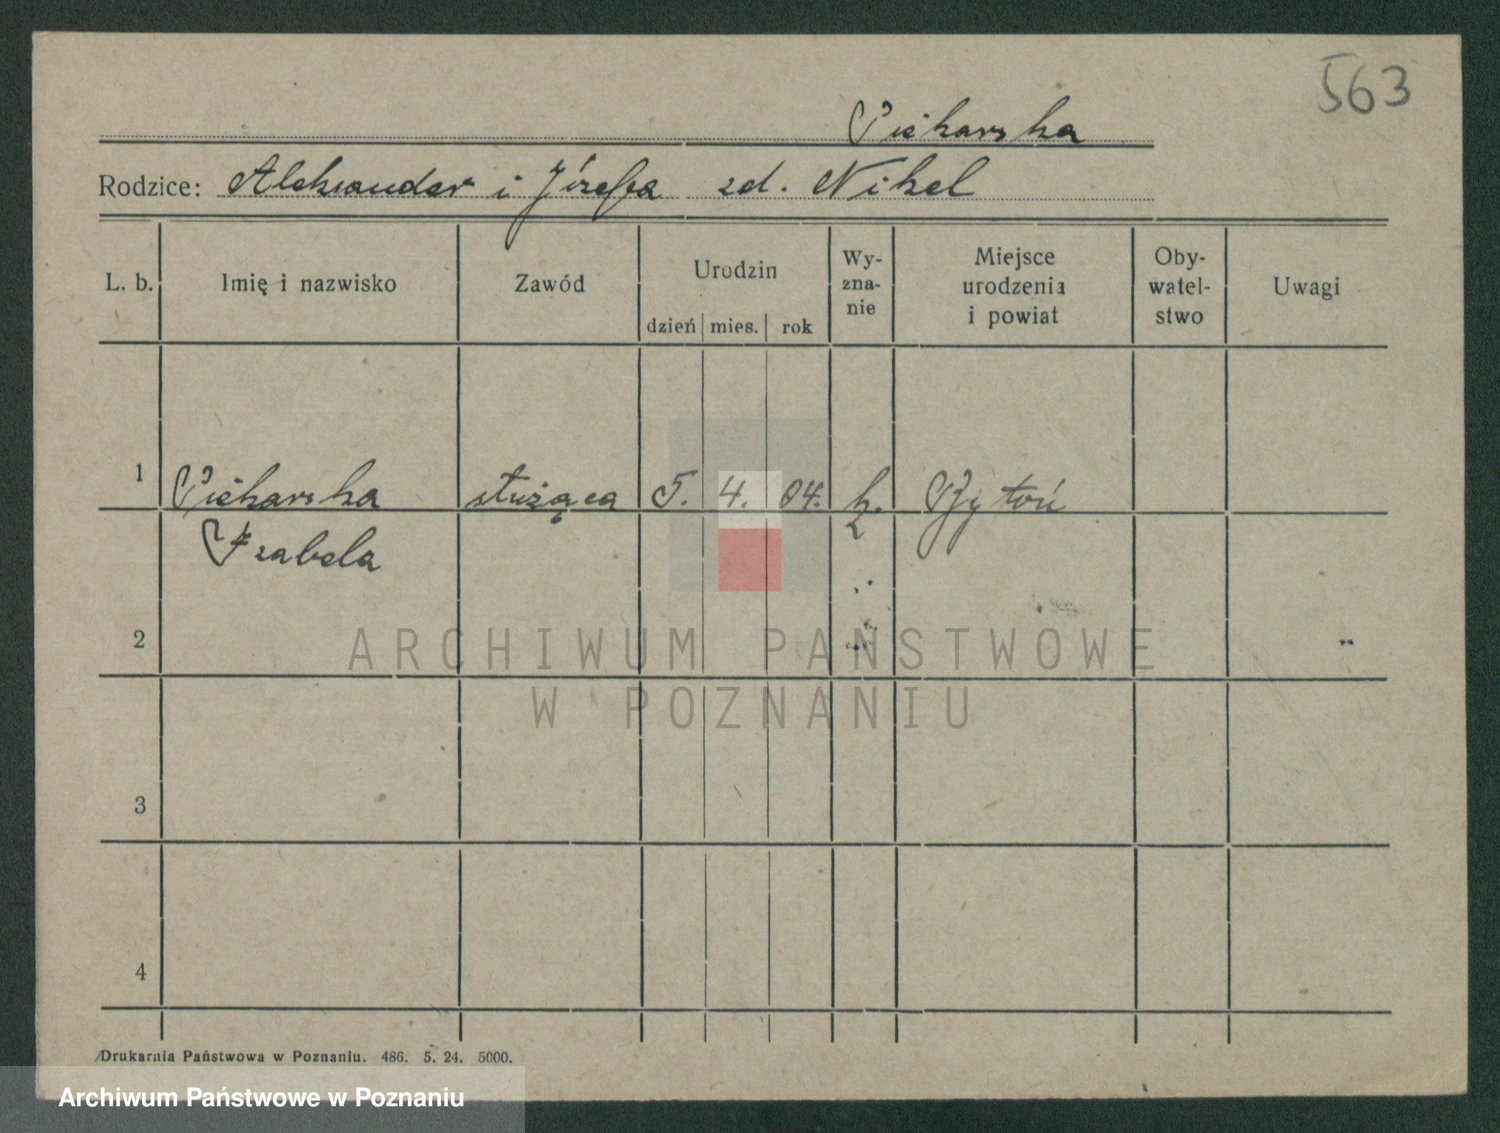 563
Piekarska
Rodzice: Aleksander i Józefa zd. Nikel
L. b. Imię i nazwisko Zawód Urodzin dzień mies. rok Wy-zna-nie Miejsce urodzenia i powiat Oby-watel-stwo Uwagi
1 Piekarska służąca 5. 4. 04. k. Bytoń
Izabela
2
ARCHIWUM PAŃSTWOWE
W POZNANIU
3
4
Drukarnia Państwowa w Poznaniu. 486. 5. 24. 5000.
Archiwum Państwowe w Poznaniu